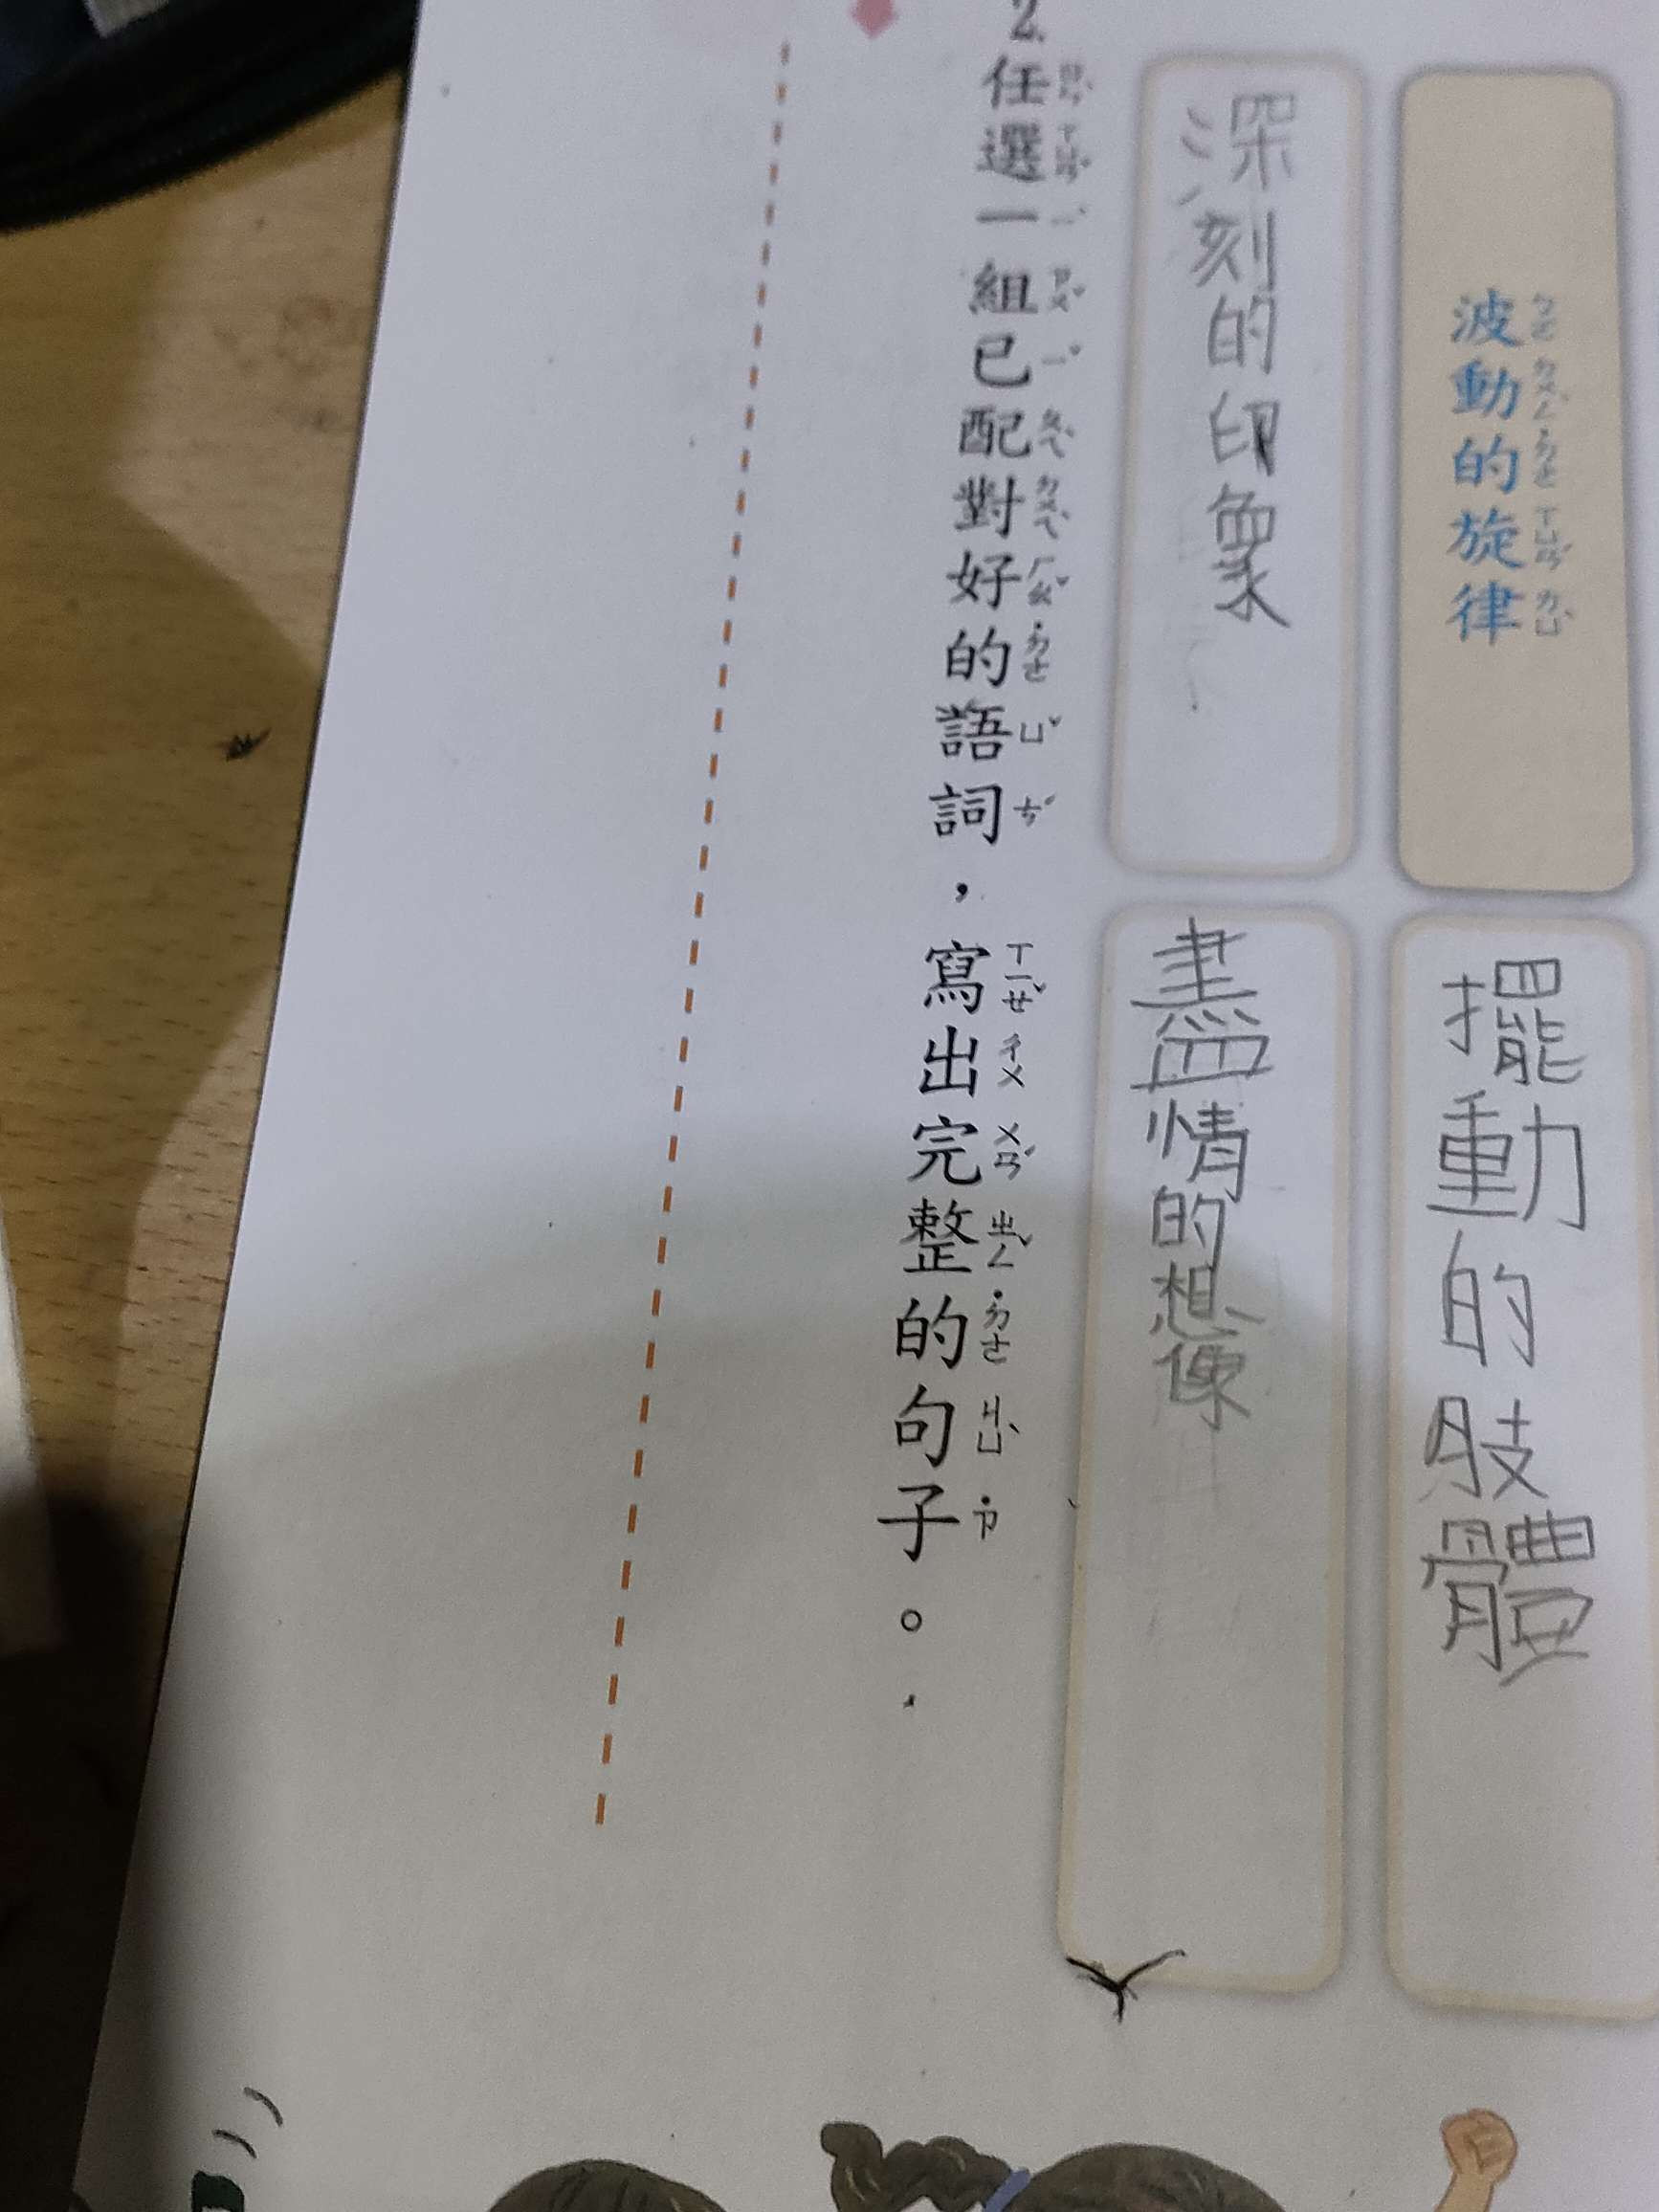 波動的旋律
擺動的肢體
深刻的印象
盡情的想像
2.任選一組已配對好的語詞，寫出完整的句子。